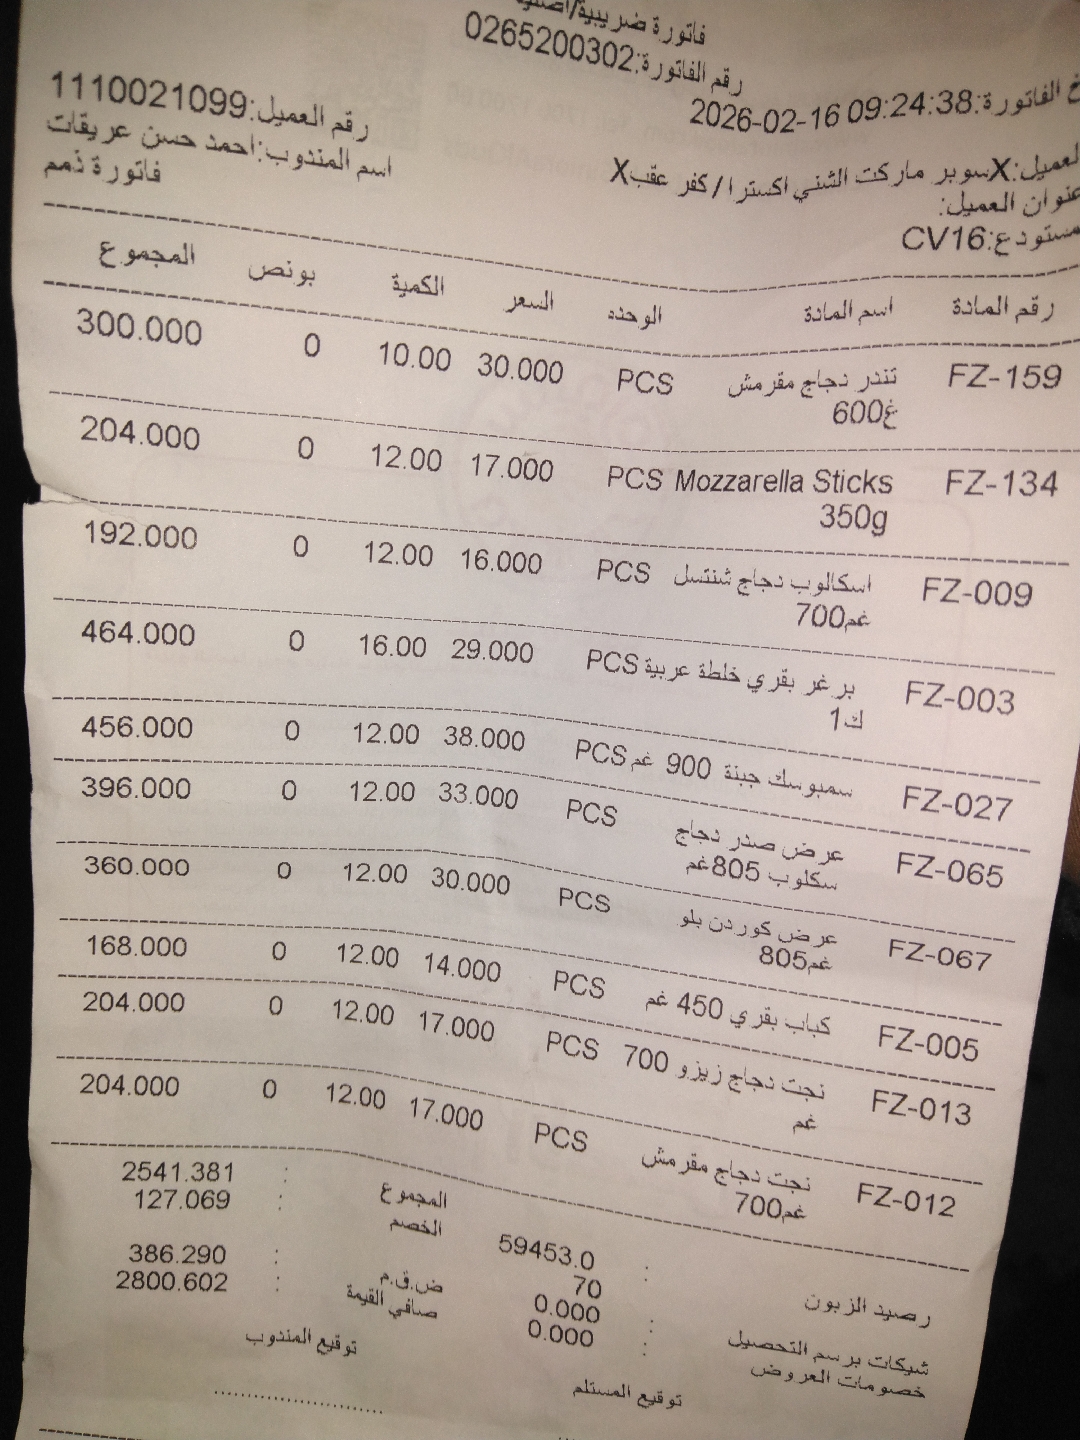 فاتورة ضريبية/
رقم الفاتورة:0265200302
الفاتورة:2026-02-16 09:24:38
رقم العميل:1110021099
العميل:Xسوبر ماركت الشني اكسترا/كفر عقبX
اسم المندوب:احمد حسن عريقات
عنوان العميل:
فاتورة ذمم
مستودع:CV16
رقم المادة اسم المادة الوحده السعر الكمية بونص المجموع
FZ-159 تندر دجاج مقرمش PCS 30.000 10.00 0 300.000
600غ
FZ-134 Mozzarella Sticks PCS 17.000 12.00 0 204.000
350g
FZ-009 اسكالوب دجاج شنتسل PCS 16.000 12.00 0 192.000
700غم
FZ-003 برغر بقري خلطة عربية PCS 29.000 16.00 0 464.000
1ك
FZ-027 سمبوسك جبنة 900 غم PCS 38.000 12.00 0 456.000
FZ-065 عرض صدر دجاج PCS 33.000 12.00 0 396.000
سكلوب 805غم
FZ-067 عرض كوردن بلو PCS 30.000 12.00 0 360.000
805غم
FZ-005 كباب بقري 450 غم PCS 14.000 12.00 0 168.000
FZ-013 نجت دجاج زيزو 700 PCS 17.000 12.00 0 204.000
غم
FZ-012 نجت دجاج مقرمش PCS 17.000 12.00 0 204.000
700غم
المجموع : 2541.381
الخصم : 127.069
رصيد الزبون : 59453.0
70
ض.ق.م : 386.290
شيكات برسم التحصيل : 0.000
صافي القيمة : 2800.602
خصومات العروض : 0.000
توقيع المستلم توقيع المندوب